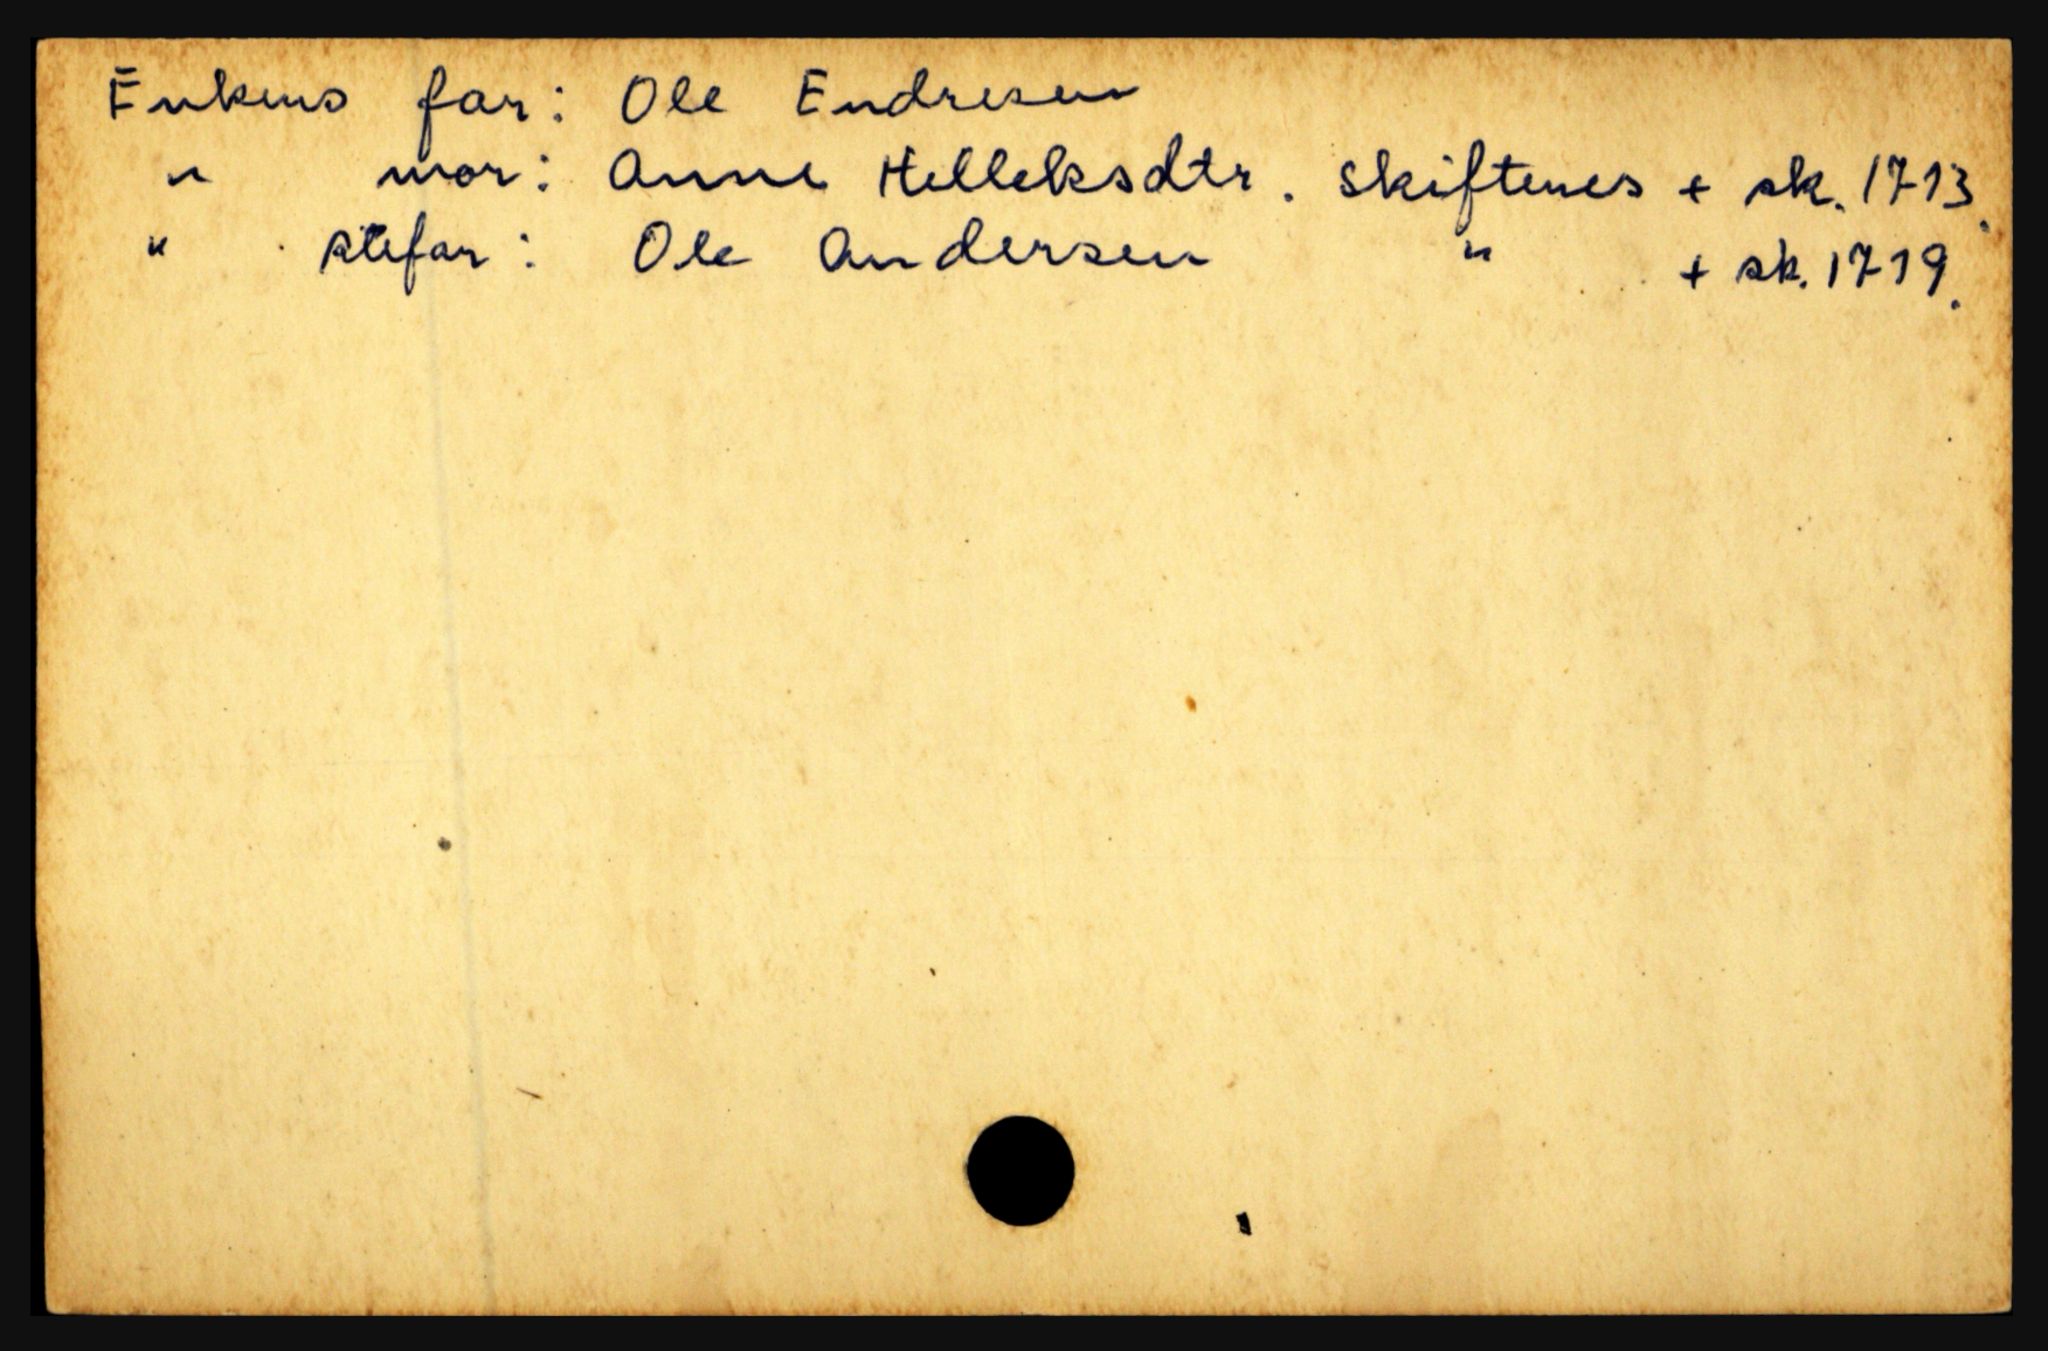 Enkens far: Ole Endresen
" mor: Anne Helleksdtr. Skiftenes + sk. 1713.
" stefar: Ole Andersen " + sk. 1719.